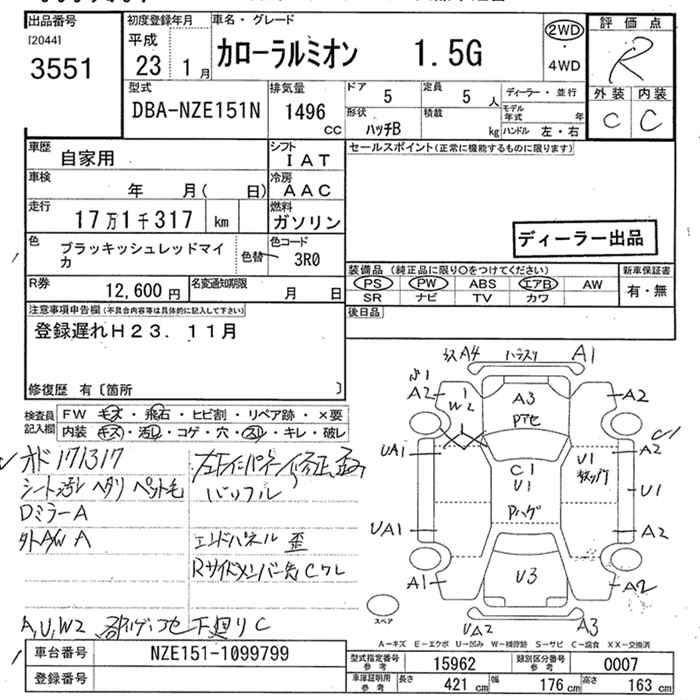 出品番号
[2044]
3551
初度登録年月
平成
23 1月
車名・グレード
カローラルミオン 1.5G
2WD
・
4WD
評価点
R
外装 内装
C C
型式
DBA-NZE151N
排気量
1496
CC
ドア
5
定員
5 人
ディーラー・並行
モデル年式 年
形状
ハッチB
積載
kg
ハンドル 左・右
車歴
自家用
シフト
IAT
セールスポイント(正常に機能するものに限ります)
車検
年 月( 日)
冷房
AAC
走行
17万1千317 km
燃料
ガソリン
ディーラー出品
色
ブラッキッシュレッドマイカ
色替
色コード
3R0
装備品(純正品に限り○をつけてください)
新車保証書
PS PW ABS エアB AW
有・無
SR ナビ TV カワ
R券
12,600 円
名変通知期限
月 日
後日品
注意事項申告欄(不具合内容等は具体的に記入して下さい)
登録遅れH23.11月
修復歴 有〔箇所 〕
検査員記入欄
FW キズ・飛石・ヒビ割・リペア跡・×要
内装 キズ・汚レ・コゲ・穴・スレ・キレ・破レ
オド 171317
シート汚レ ヘタリ ペット毛
Dミラー A
外AW A
バックフル
エンドパネル 歪
Rサイドメンバー先 Cワレ
A,U,W2
下廻リ C
A4 A1
A2 1 W2 A3 A2
Pアセ
UA1 C1 U1 U1 A2
U1
Pハゲ
UA1 A2
A1 U3 A2
UA2 A3
スペア
A-キズ E-エクボ U-凹み W-補修跡 S-サビ C-腐食 XX-交換済
車台番号
NZE151-1099799
登録番号
型式指定番号
参考
15962
類別区分番号
参考
0007
車庫証明用
参考
長さ 421 cm 幅 176 cm 高さ 163 cm